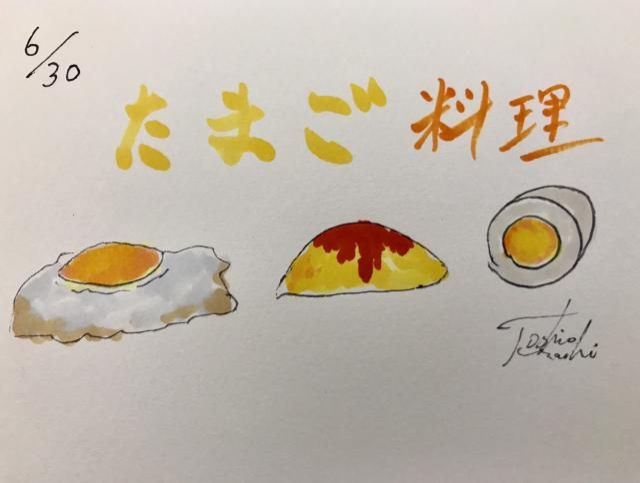 6/30
たまご料理
Toshio